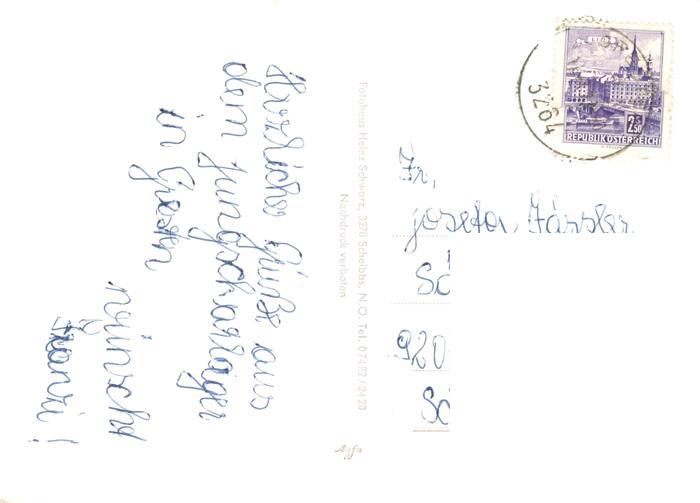 Herzliche Grüße aus
dem Jungscharlager
in Gresten
wünscht
Franzi!
Fotohaus Heinz Schwarz, 3270 Scheibbs, N.Ö. Tel. 07482/2420
Nachdruck verboten
Agfa
LINZ
2.50
REPUBLIK ÖSTERREICH
3264
Fr,
Josefa,
920